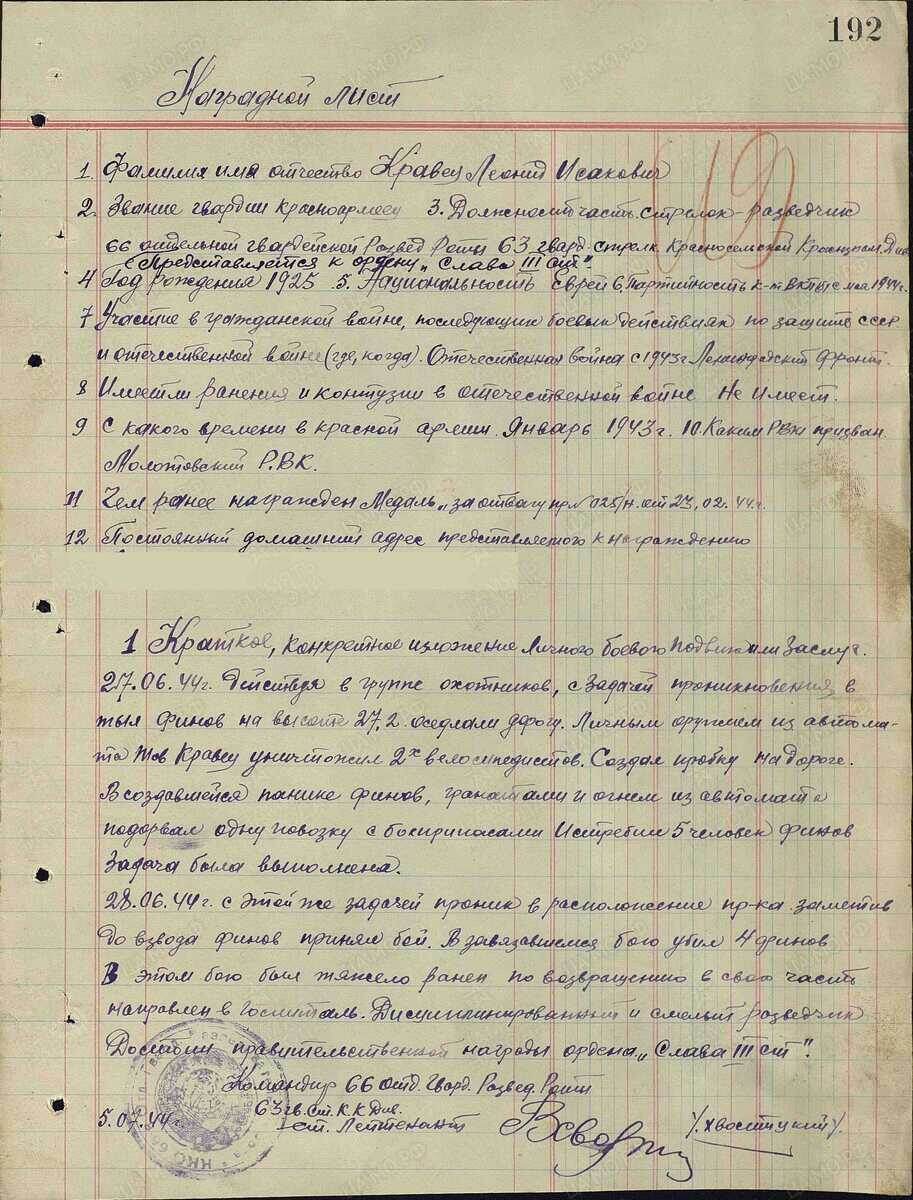 192
Наградной лист
1. Фамилия имя отчество Кравец Леонид Исакович
2. Звание гвардии красноармеец 3. Должность часть. стрелок-разведчик
66 отдельной гвардейской Развед Роты 63 гвард. стрелк. Красносельской Краснознам. Див
(Представляется к ордену "Слава III ст".
4 Год рождения 1925 5. Национальность Еврей 6. Партийность к-т ВКП(б) с мая 1944г.
7 Участие в гражданской войне, последующих боевых действиях по защите СССР
и отечественной войне (где, когда). Отечественная война с 1943г Ленинградский фронт.
8 Имеет ли ранения и контузии в отечественной войне Не имеет.
9 С какого времени в красной армии. Январь 1943г. 10. Каким РВК призван.
Молотовский Р.ВК.
11 Чем ранее награжден Медаль "за отвагу пр № 025/н. от 27.02.44г.
12 Постояный домашний адрес представляемого к награждению
1 Краткое, конкретное изложение личного боевого подвига или заслуг.
27.06.44г. Действуя в группе охотников, с задачей проникновения в
тыл финов на высоте 27,2 оседлали дорогу. Личным оружием из автома-
та тов Кравец уничтожил 2х велосипедистов. Создал пробку на дороге.
В создавшейся панике финов, гранатами и огнем из автомата
подорвал одну повозку с боеприпасами Истребил 5 человек финов
Задача была выполнена.
28.06.44г. с этой же задачей проник в расположение пр-ка заметив
до взвода финов принял бой. В завязавшемся бою убил 4 финов
В этом бою был тяжело ранен по возвращению в свою часть
направлен в госпиталь. Дисциплинированный и смелый разведчик
Достоин правительственной награды ордена "Слава III ст".
Командир 66 отд. Гвард. Развед. Роты
63 гв. ст. К.К Див.
5.07.44г. ст. Лейтенант /Хвостицкий/